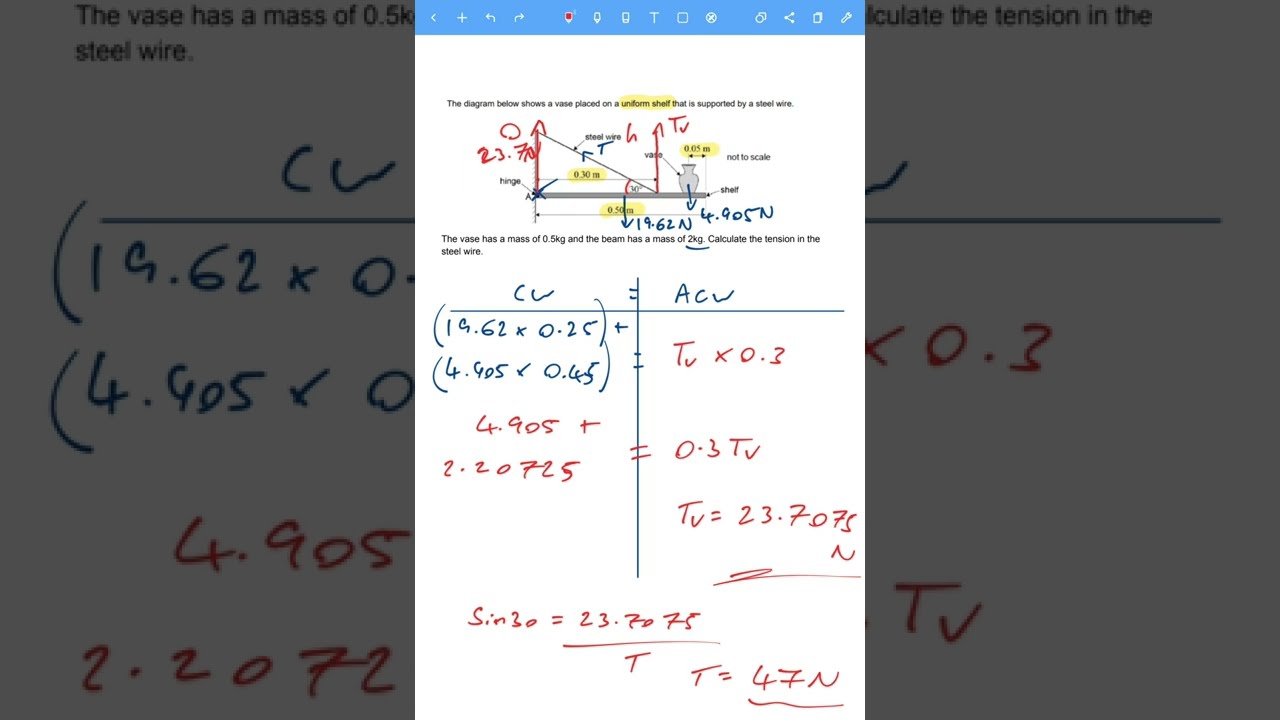 The vase has a mass of 0.5k
lculate the tension in the
steel wire.
The diagram below shows a vase placed on a uniform shelf that is supported by a steel wire.
O
23.7N
steel wire
h
Tv
T
vase
0.05 m
not to scale
0.30 m
hinge
30°
shelf
A
0.50 m
19.62N
4.905N
The vase has a mass of 0.5kg and the beam has a mass of 2kg. Calculate the tension in the
steel wire.
CW = ACW
(19.62 × 0.25) +
(4.905 × 0.45) = Tv × 0.3
4.905 +
2.20725 = 0.3Tv
Tv = 23.7075
N
Sin30 = 23.7075
T
T = 47N
CW
(19.62 × 0.
(4.905 × 0
× 0.3
4.905
2.2072
Tv